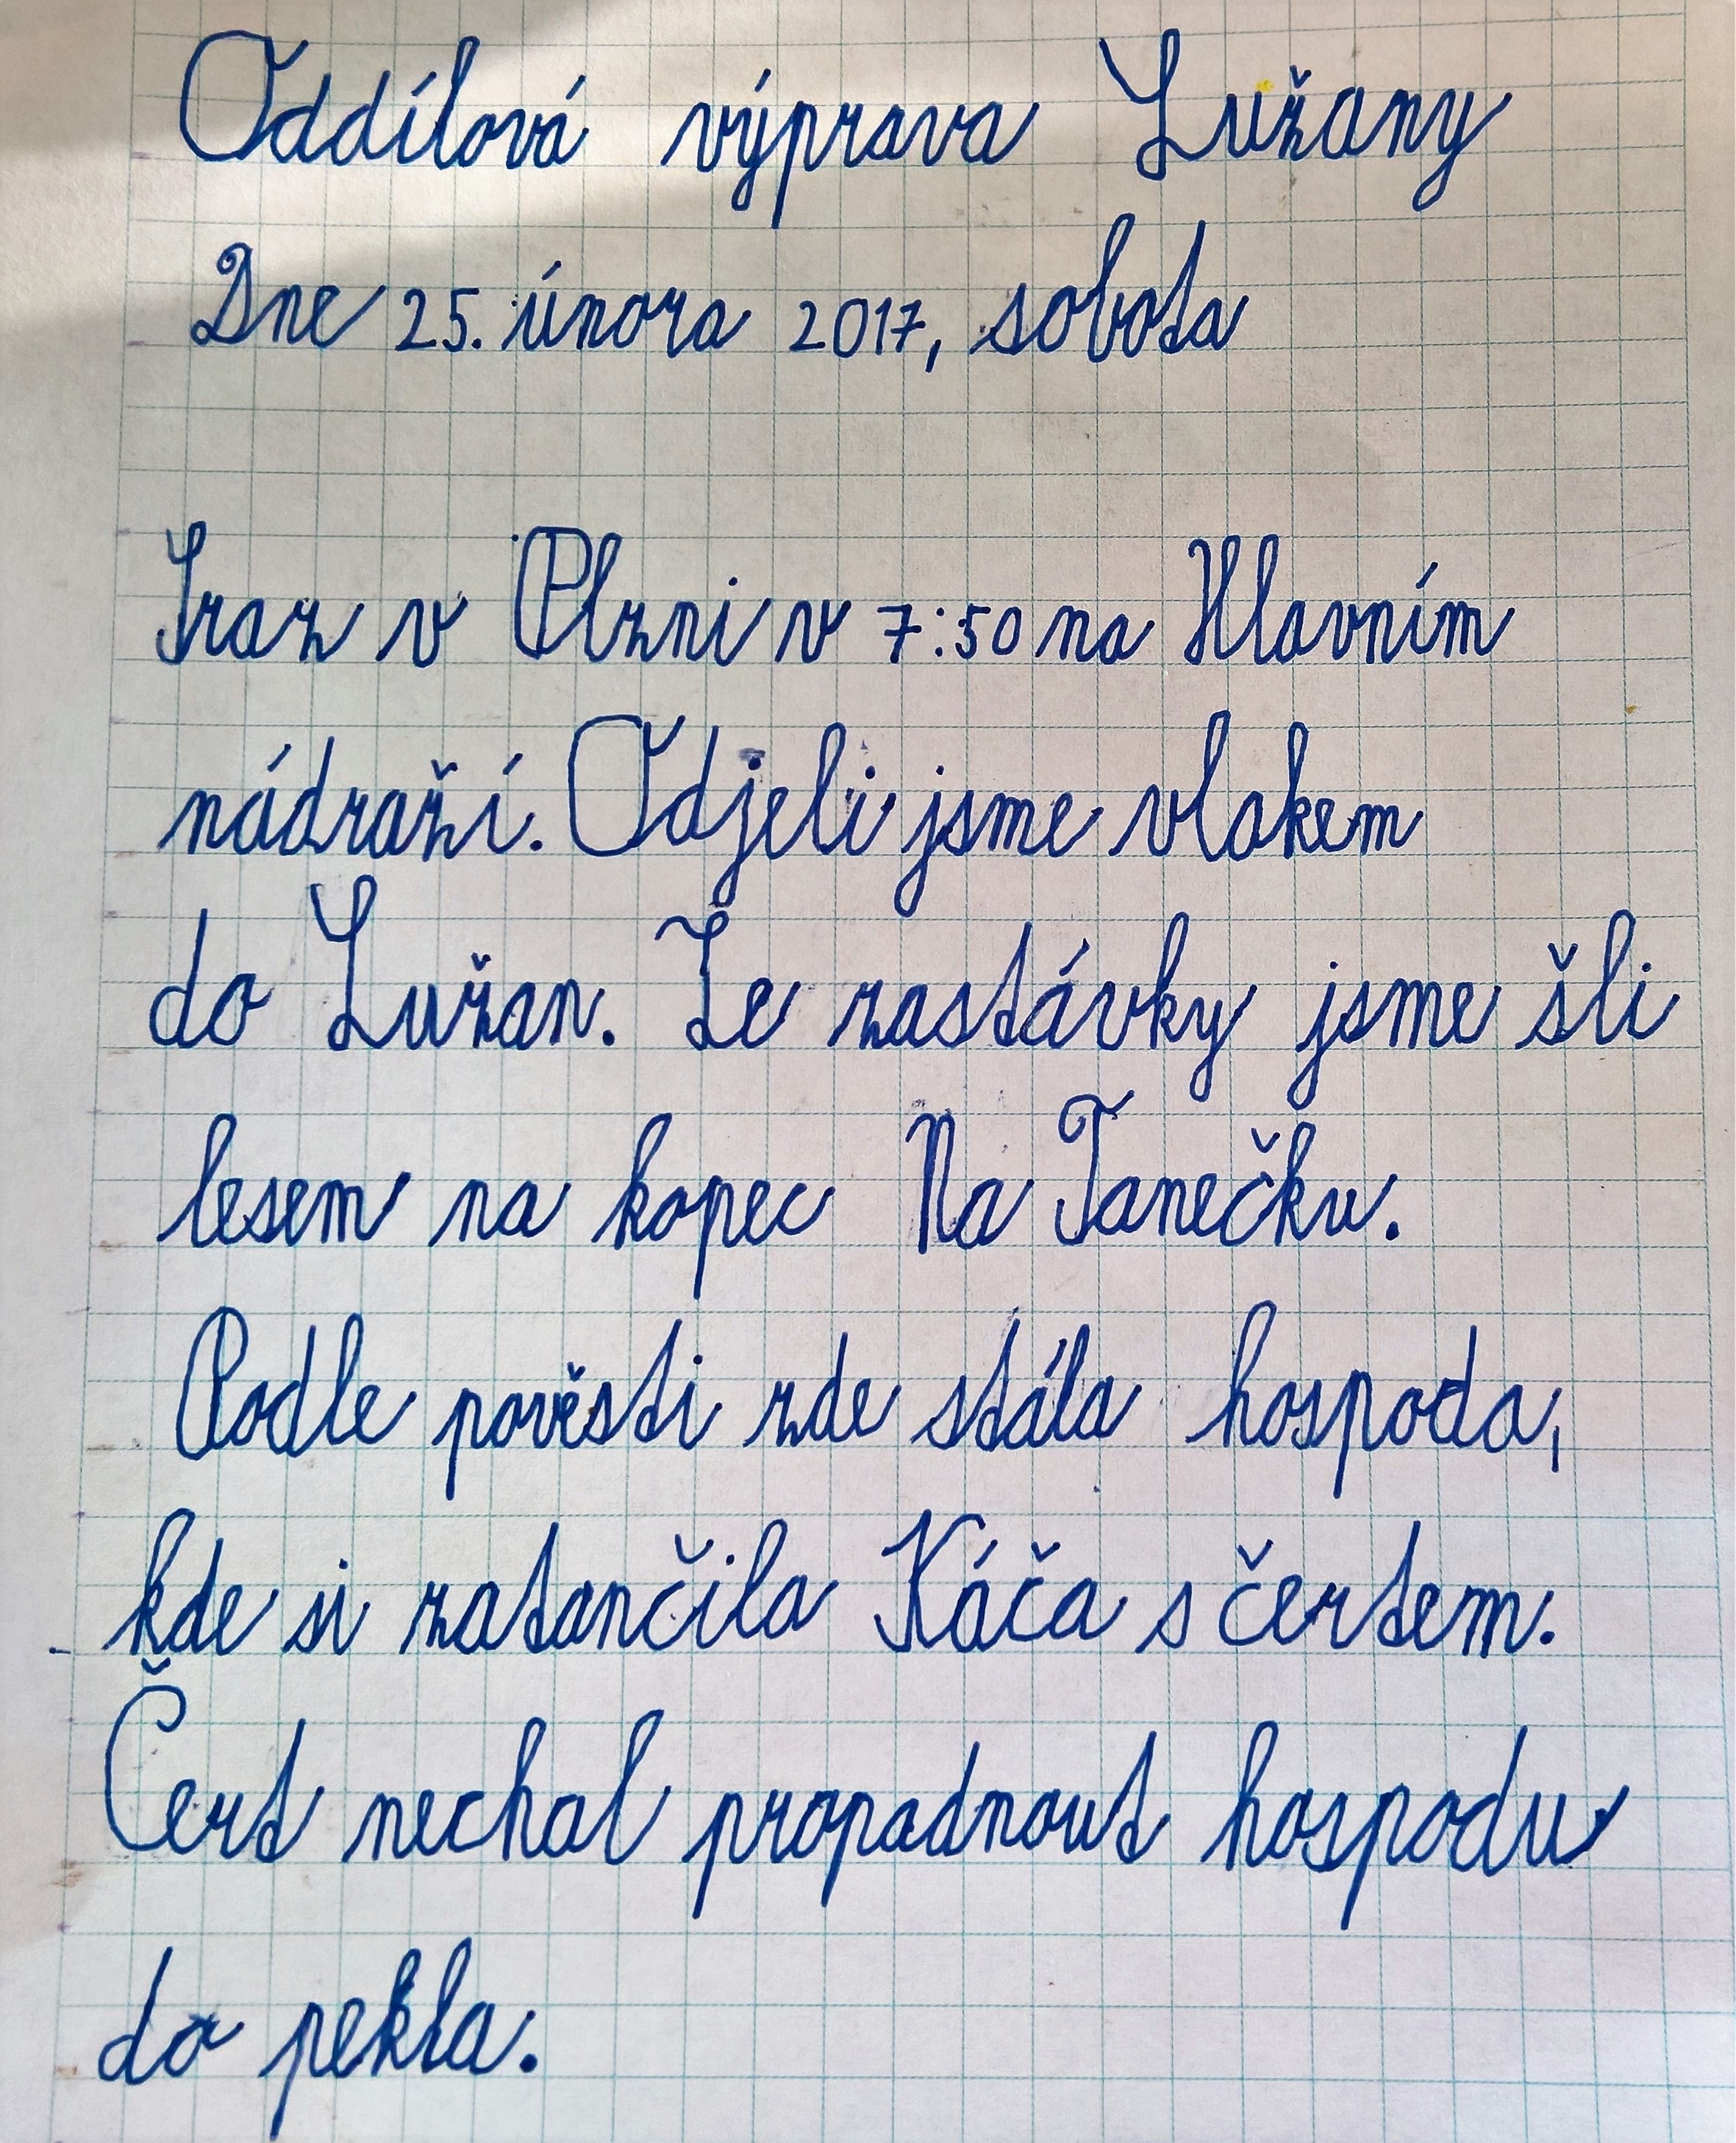 Oddílová výprava Lužany
Dne 25. února 2017, sobota
Sraz v Plzni v 7:50 na Hlavním
nádraží. Odjeli jsme vlakem
do Lužan. Ze zastávky jsme šli
lesem na kopec Na Tanečku.
Podle pověsti zde stála hospoda,
kde si zatančila Káča s čertem.
Čert nechal propadnout hospodu
do pekla.